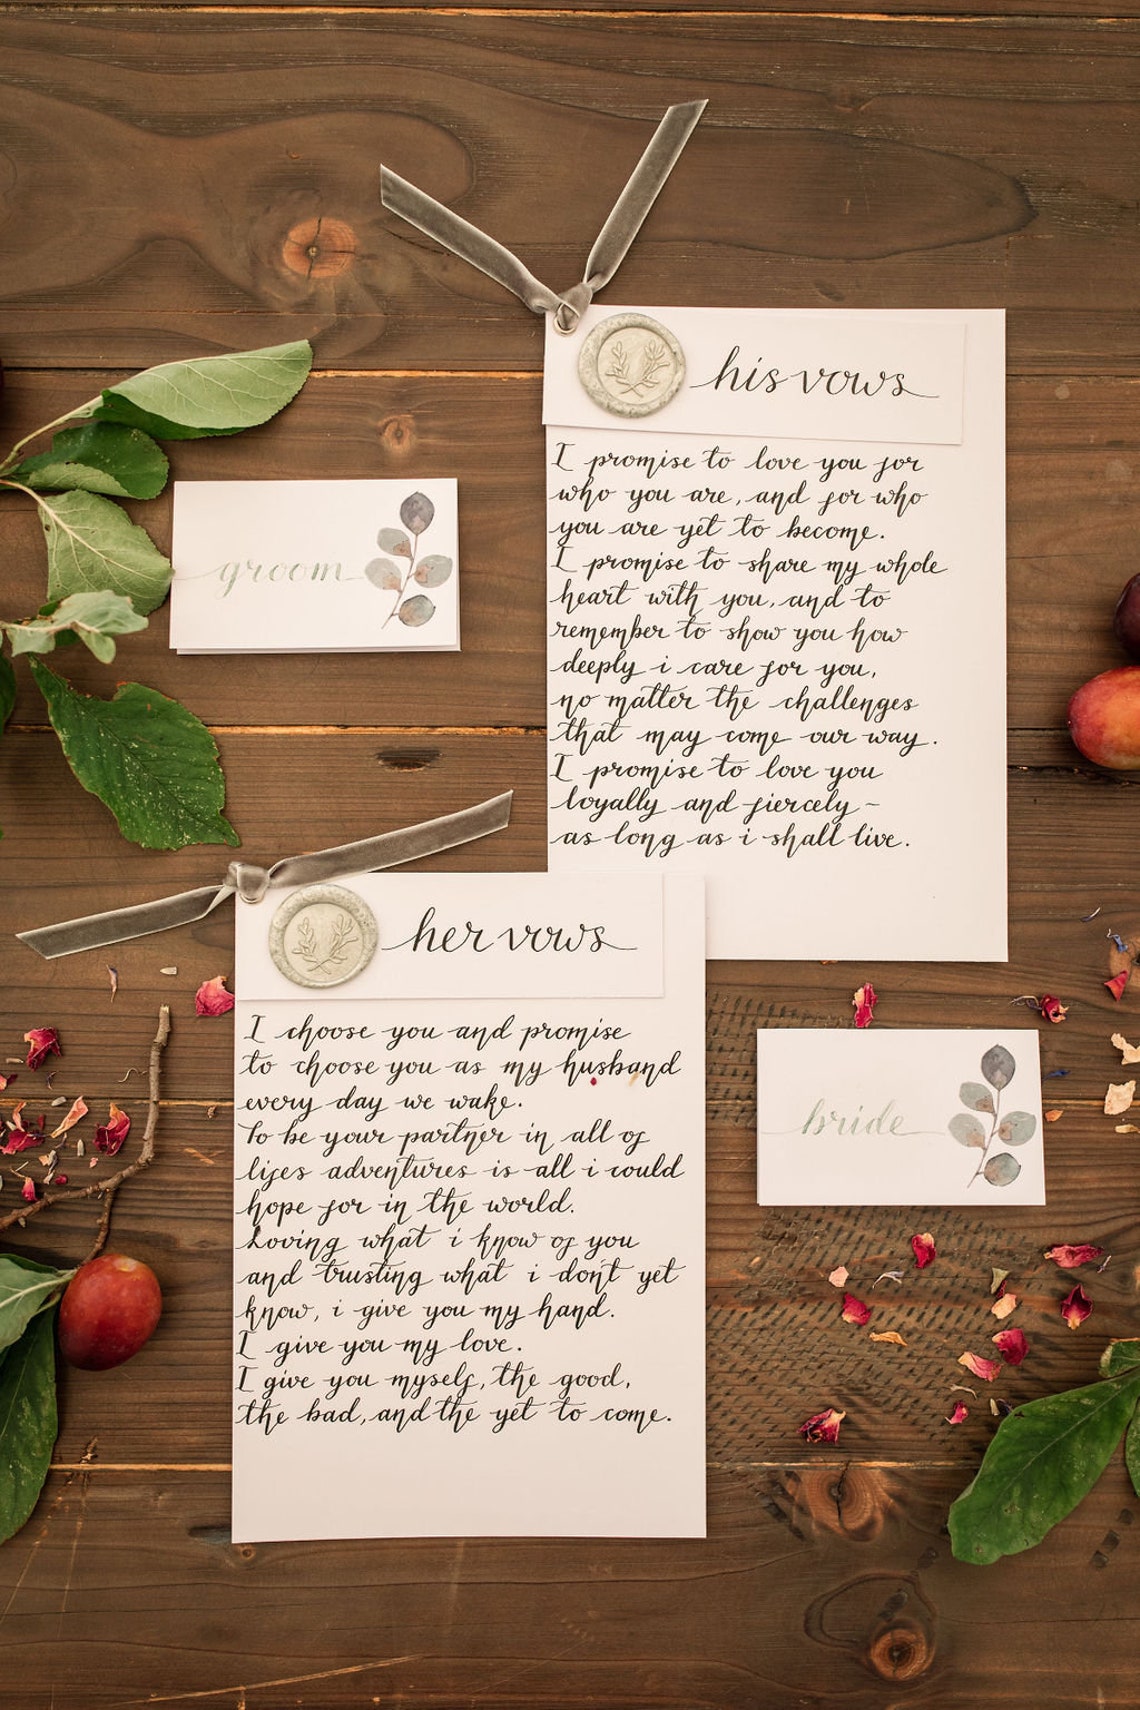 his vows
I promise to love you for
who you are, and for who
you are yet to become.
I promise to share my whole
heart with you, and to
remember to show you how
deeply i care for you,
no matter the challenges
that may come our way.
I promise to love you
loyally and fiercely -
as long as i shall live.
groom
her vows
I choose you and promise
to choose you as my husband
every day we wake.
To be your partner in all of
lifes adventures is all i could
hope for in the world.
Loving what i know of you
and trusting what i don't yet
know, i give you my hand.
I give you my love.
I give you myself, the good,
the bad, and the yet to come.
bride